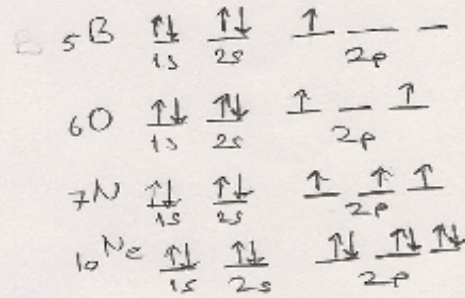 5B ↑↓ ↑↓ ↑ _ _
1s 2s 2p
6O ↑↓ ↑↓ ↑ _ ↑
1s 2s 2p
7N ↑↓ ↑↓ ↑ ↑ ↑
1s 2s 2p
10Ne ↑↓ ↑↓ ↑↓ ↑↓ ↑↓
1s 2s 2p